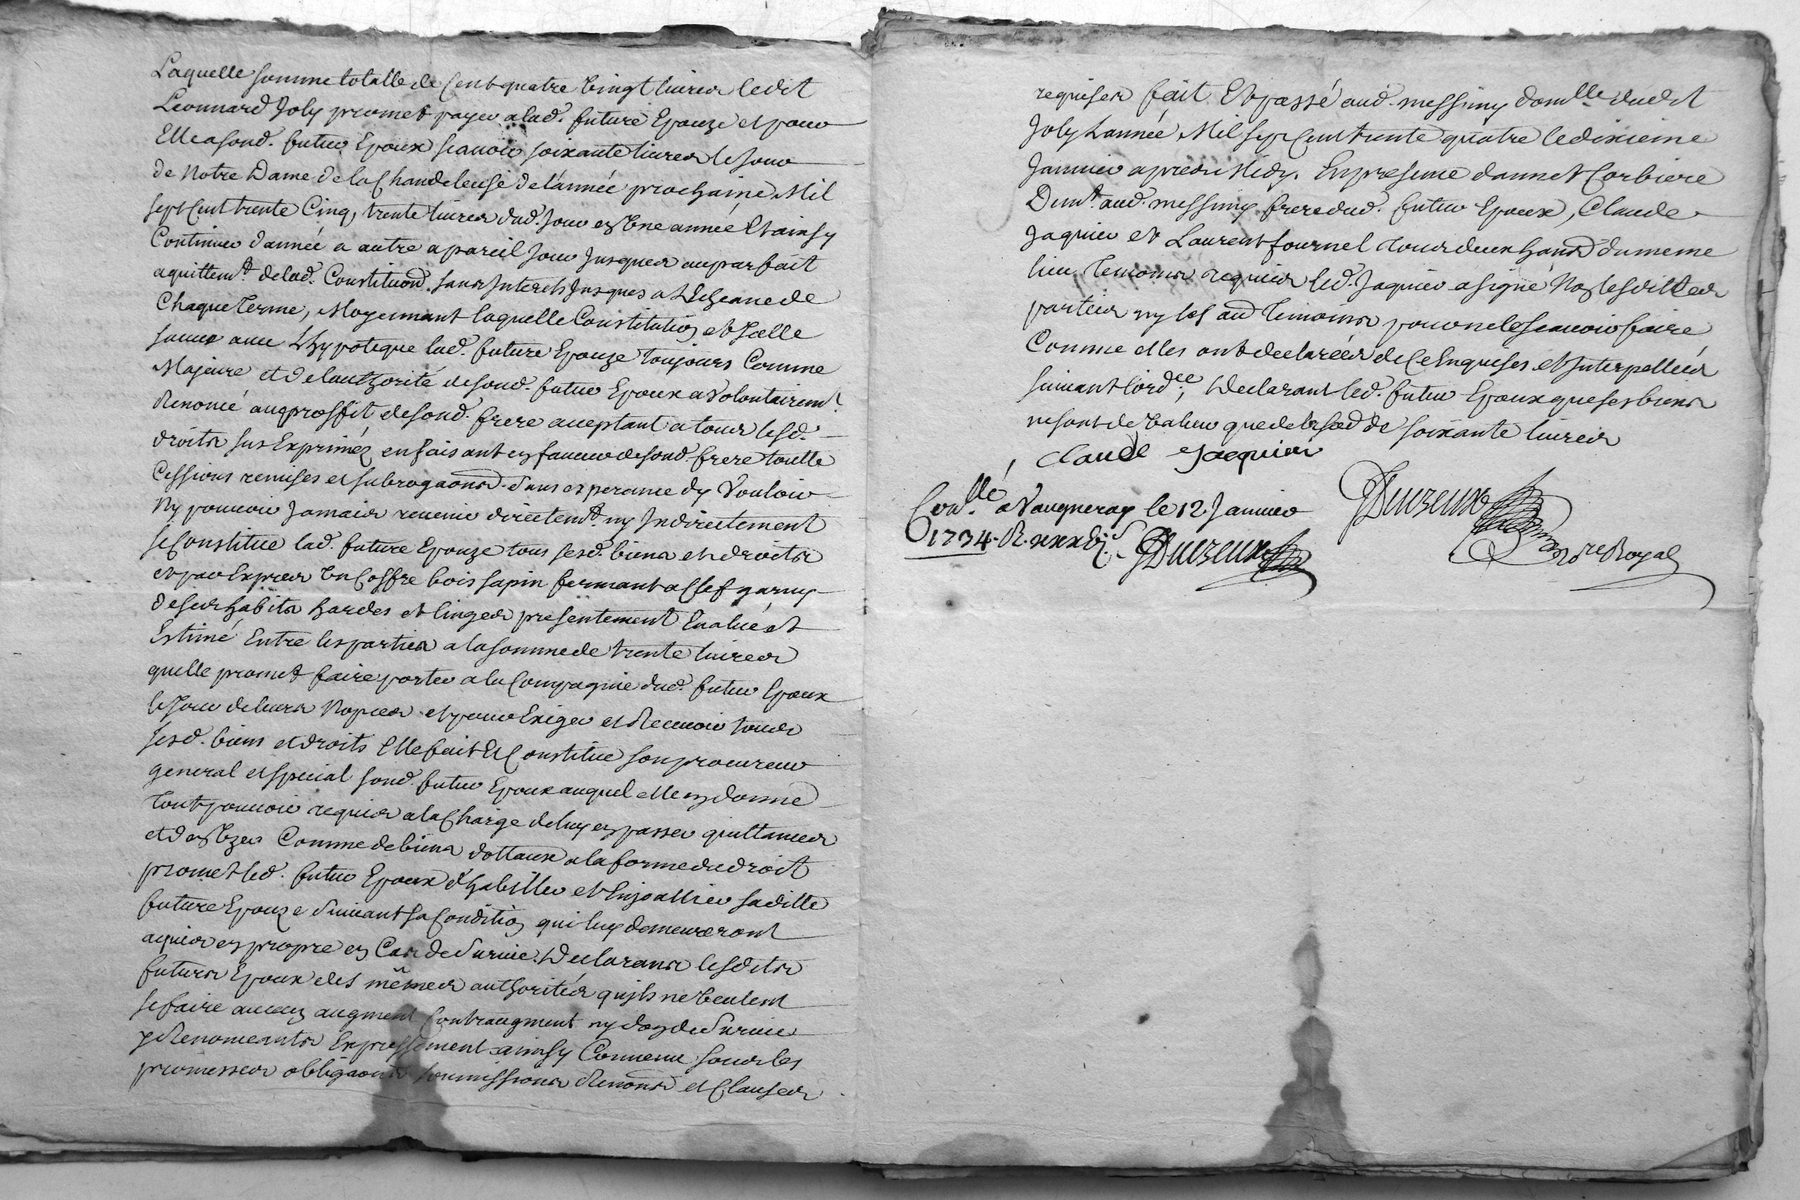 Laquelle somme totalle de Cent quatre vingt livres ledit
Leonnard Joly promet payer a lad. future Epouze et pour
Elle a sond. futur Epoux scavoir soixante livres le jour
de Notre Dame de la Chandeleuse de l'année prochaine Mil
sept Cent trente Cinq, trente livres dud. jour en une année Et ainsy
Continuer d'année a autre a pareil jour jusques au parfait
aquittemt. de lad. Constituõn. sans Interets jusques a L'Echeance de
Chaque terme, Moyennant laquelle Constitution et Icelle
sauve avec L'hypoteque lad. future Epouze toujours Comme
Majeure et de l'authorité de sond. futur Epoux a Volontairemt.
Renoncé au proffit de sond. frere aceptant a tous lesd.
droits sus Exprimez en faisant en faveur de sond frere toutte
Cessions remises et subrogaõns. sans esperance d'y Vouloir
Ny pouvoir Jamais revenir directemt. ny Indirectement
se Constitue lad. future Epouze tous sesd. biens et droits
et par Exprès Un Coffre bois sapin fermant a Clef garny
de ses habits hardes et linges presentement Evalué et
Estimé Entre les parties a la somme de trente livres
quelle promet faire porter a la Compagnie dud. futur Epoux
le jour de leurs Nopces et pour Exiger et Recevoir tous
sesd. biens et droits Elle fait Et Constitue son procureur
general et special sond. futur Epoux auquel elle en donne
tout pouvoir requis a la Charge de luy en passer quittances
et d'en Uzer Comme de biens dottaux a la forme du droit
promet led. futur Epoux d'habiller et Enjoallier sa ditte
future Epouze suivant sa Condition qui luy demeureront
aquis en propre en Cas de Survie. Declarans lesdits
futurs Epoux des mêmes authorités qu'ils ne Veulent
se faire aucun augment Contraugment ny don de Survie
y Renonceants Expressement ainsy Convenu sous les
promesses obligaõns soumissions Renõns et Clauses
requises fait Et passé aud. messimy domlle dudit
Joly L'année Mil sept Cent trente quatre le dixieme
Janvier apres Midy. En presence d'annet Corbiere
Demt. aud. messimy frere dud. futur Epoux, Claude
Jaquier et Laurent fournel tous deux habñs du meme
lieu temoins requis led. Jaquier a signé Non lesdittes
parties ny les autres temoins pour ne le scavoir faire
Comme elles ont declarées de Ce Enquises et Interpellées
suivant l'ordce, Declarant led. futur Epoux que ses biens
ne sont de Valeur que de soixante livres
Claude Jacquier
Conllé a Vaugneray le 12 Janvier
1734. R. xxx
Ducreux
Ducreux
Nore Royal